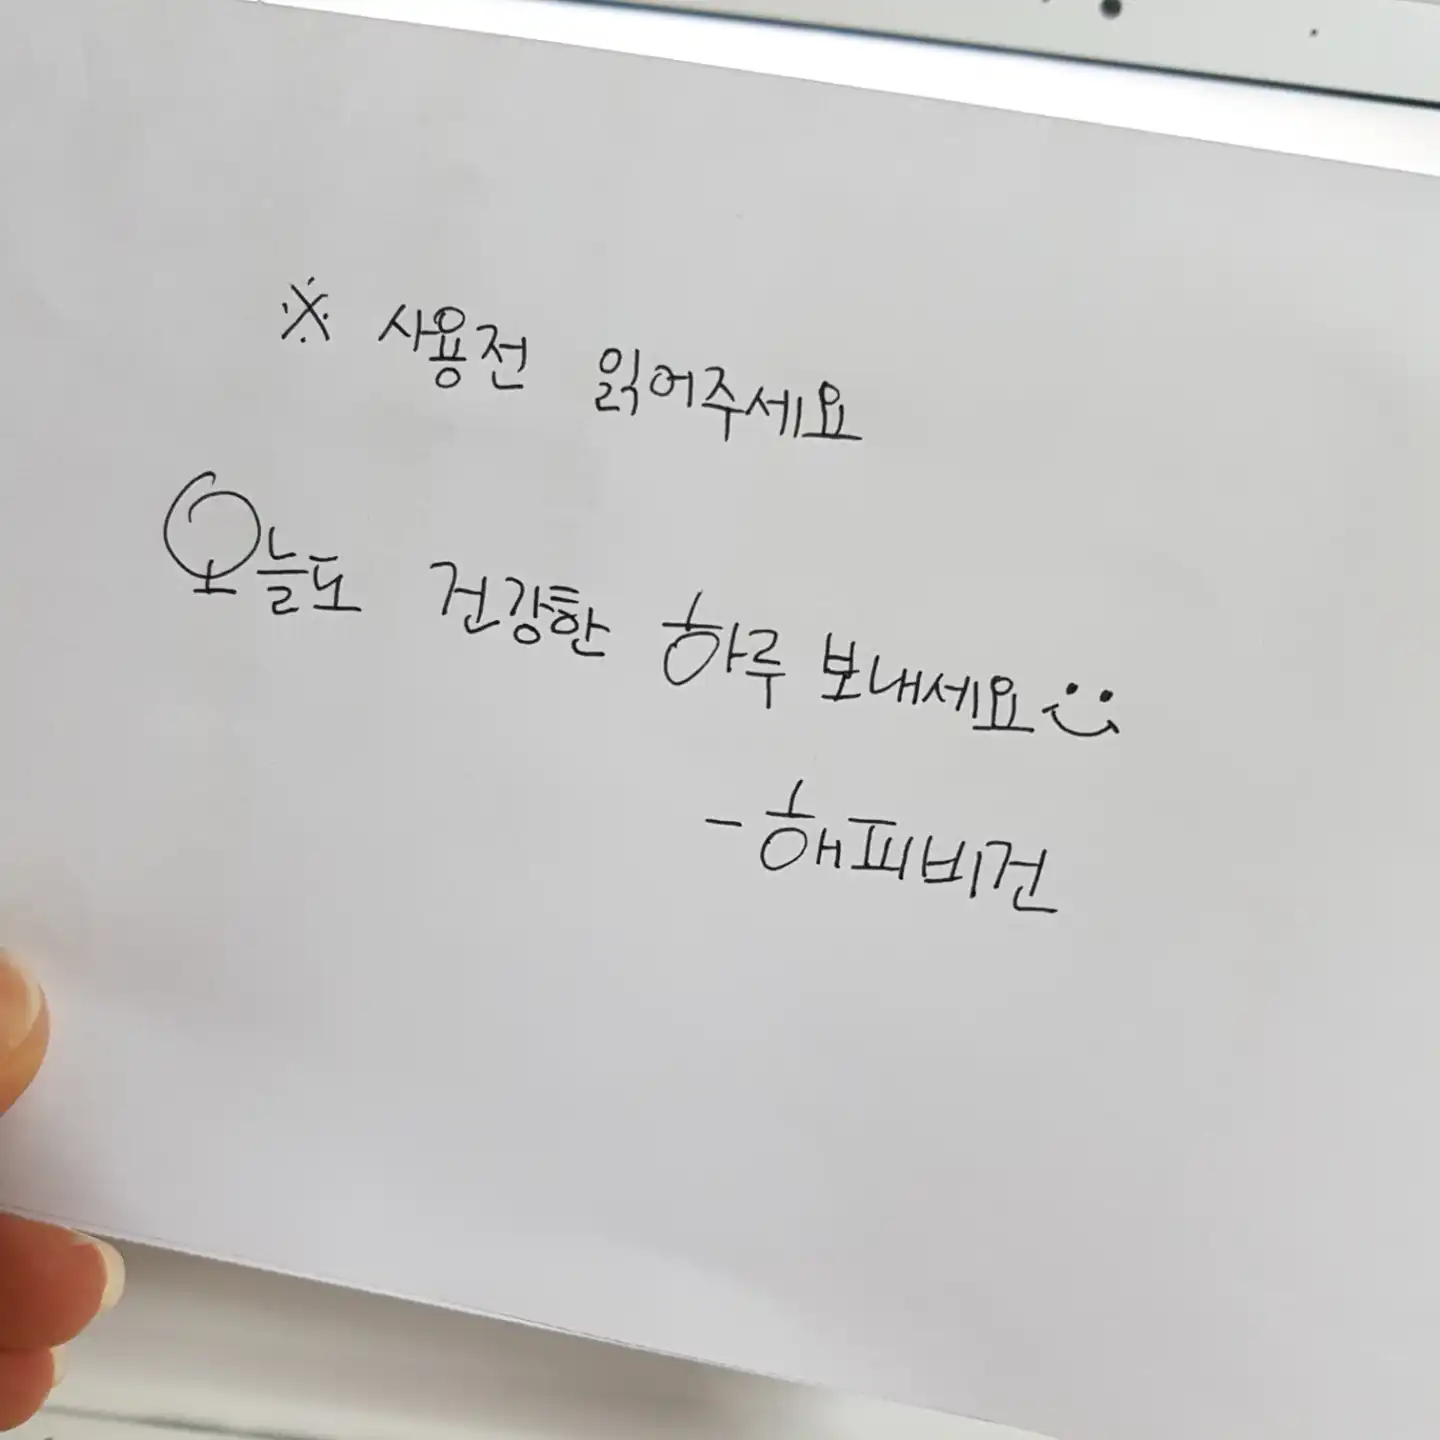 ※ 사용전 읽어주세요
오늘도 건강한 하루 보내세요
- 해피비건